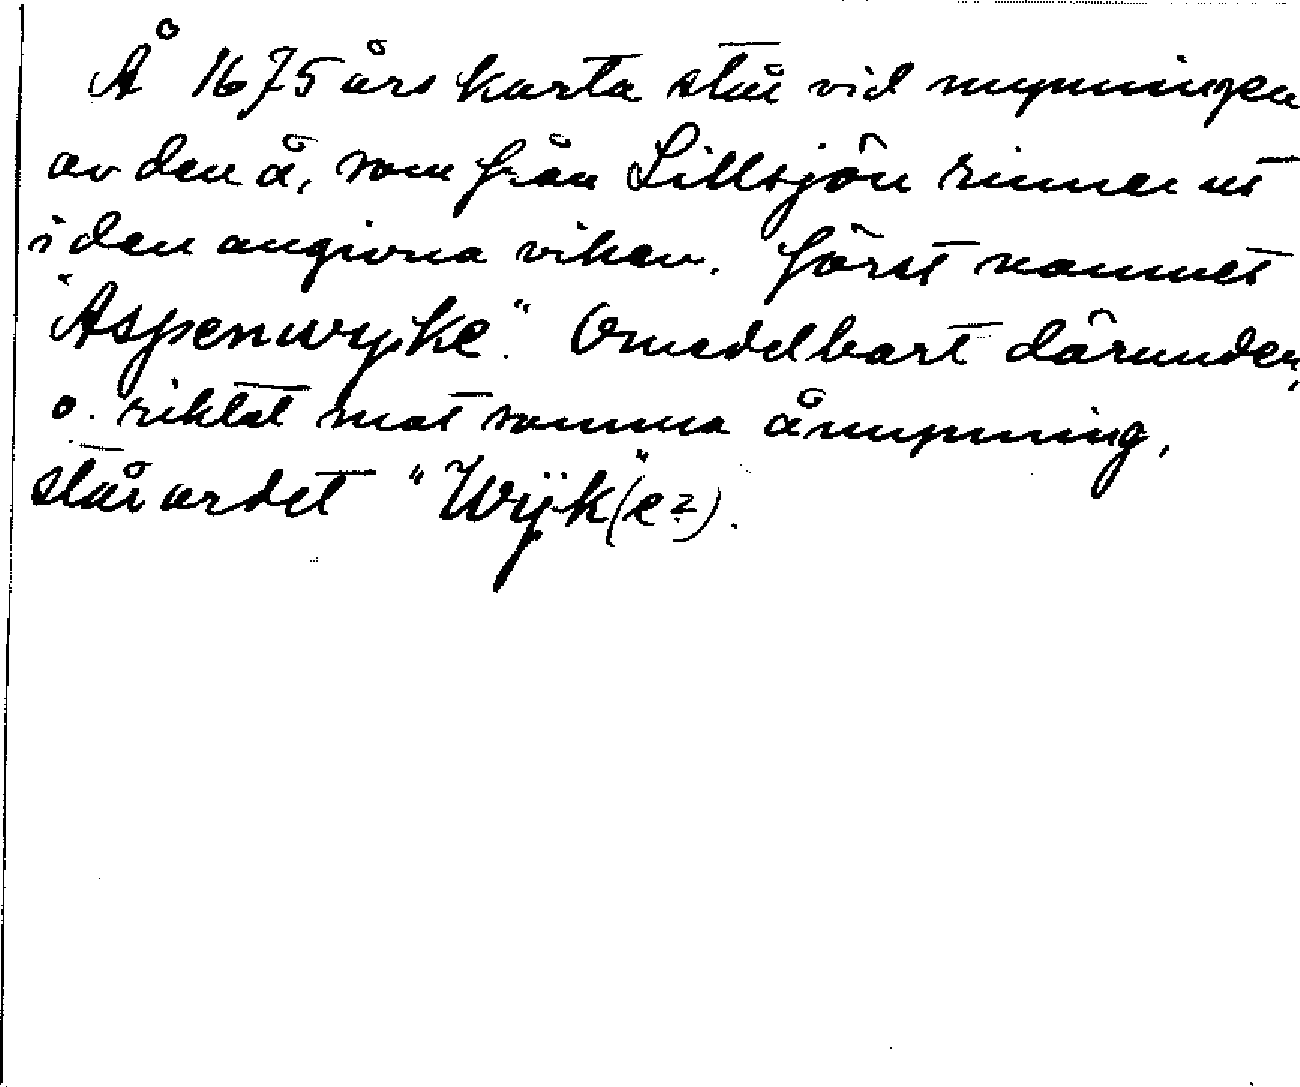 Å 1675 års karta står vid mynningen
av den å, som från Lillsjön rinner ut
i den angivna viken, först namnet
"Aspenwyke". Omedelbart därunder,
o. riktat mot samma åmynning,
står ordet "Wÿk(e?)".